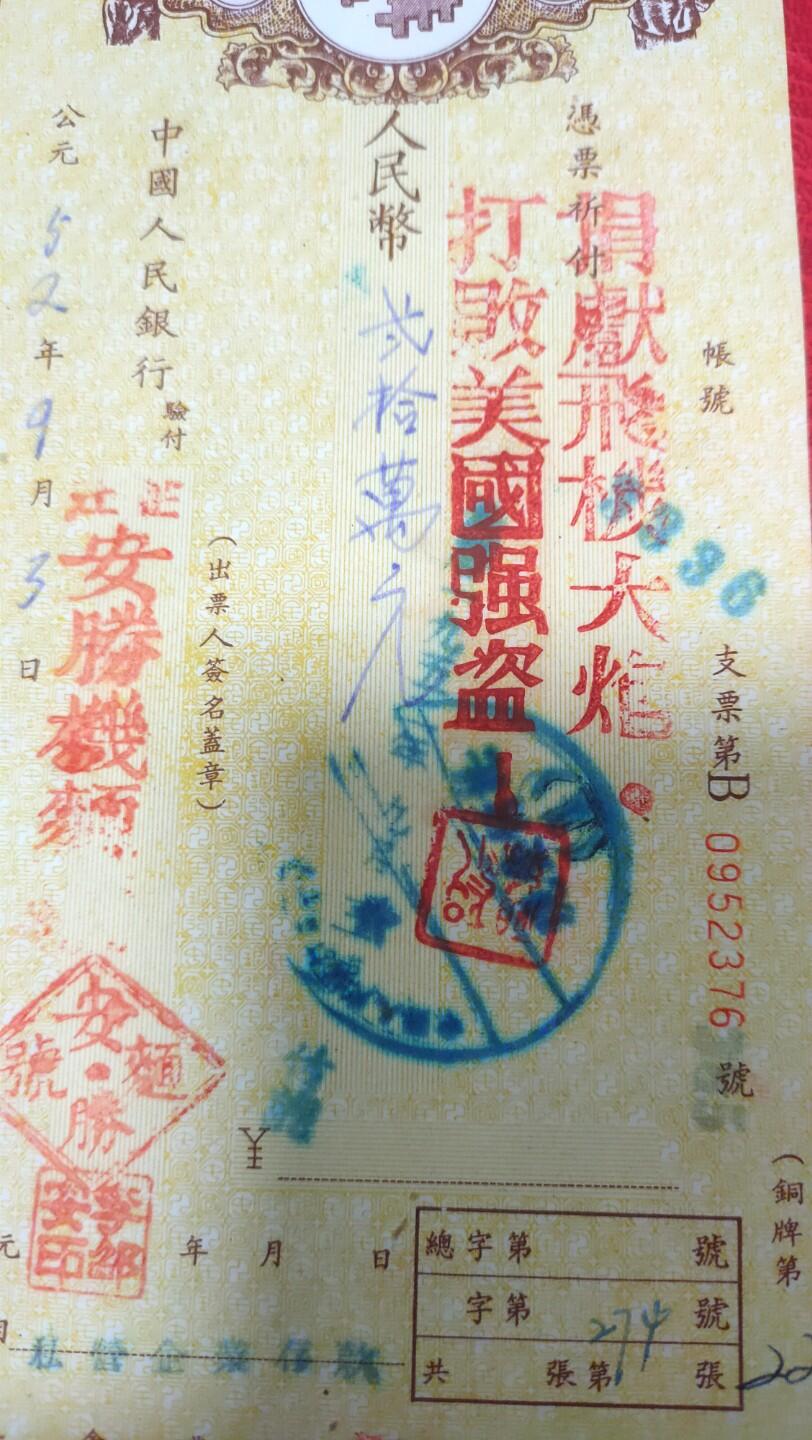 帳號
支票第B 0952376號
(銅牌第
憑票祈付
捐獻飛機大炮.
打敗美國强盜!
人民幣
弍拾萬元
(出票人簽名蓋章)
中國人民銀行
驗付
公元52年9月3日
安勝機麵
安·勝
麵號
¥
年月日
總字第號
字第274號
共張第張
20
私營企業存款